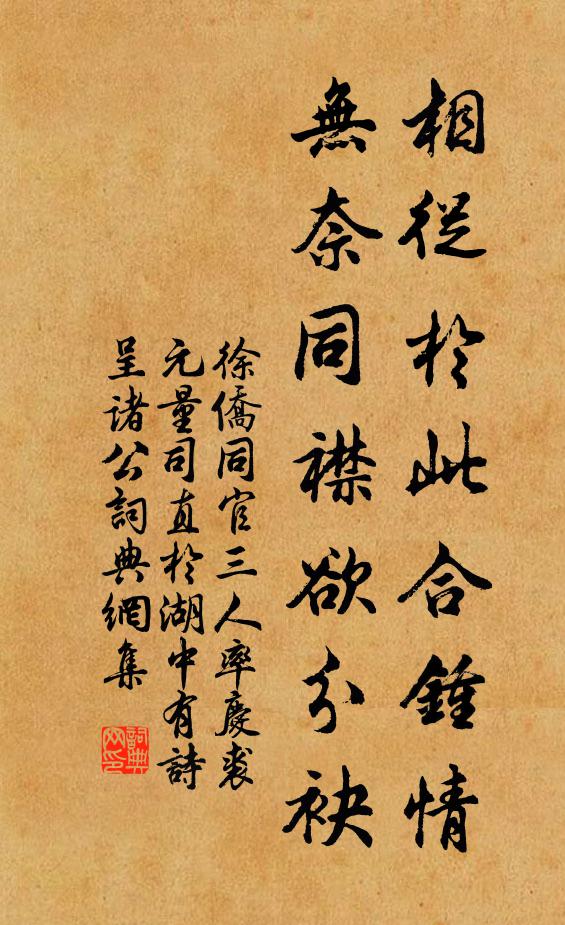 相從於此合鍾情
無奈同襟欲分袂
徐僑同官三人率慶裘
元量司直於湖中有詩
呈诸公詞典網集
詞典
网印